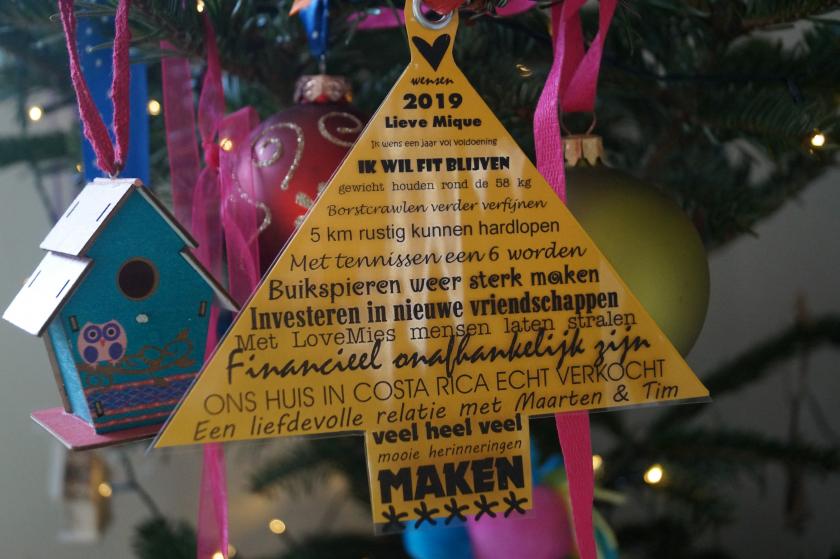 wensen
2019
Lieve Mique
Ik wens een jaar vol voldoening
IK WIL FIT BLIJVEN
gewicht houden rond de 58 kg
Borstcrawlen verder verfijnen
5 km rustig kunnen hardlopen
Met tennissen een 6 worden
Buikspieren weer sterk m@ken
Investeren in nieuwe vriendschappen
Met LoveMies mensen laten stralen
Financieel onafhankelijk zijn
ONS HUIS IN COSTA RICA ECHT VERKOCHT
Een liefdevolle relatie met Maarten & Tim
veel heel veel
mooie herinneringen
MAKEN